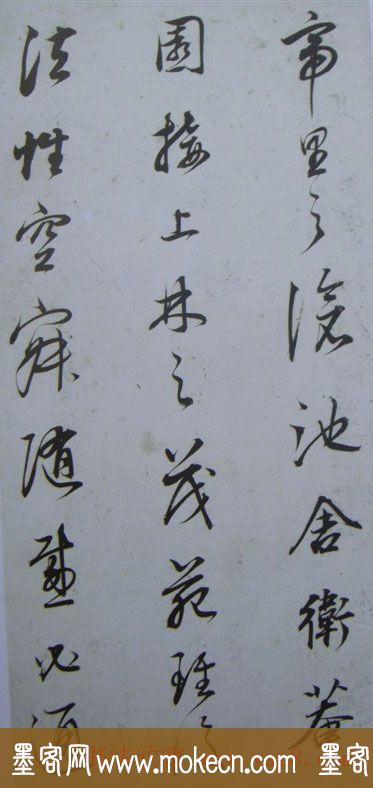 帝里之滄池舍衛菴
園接上林之茂苑雖
法性空寂隨感必通
墨客网 www.mokecn.com 墨客网